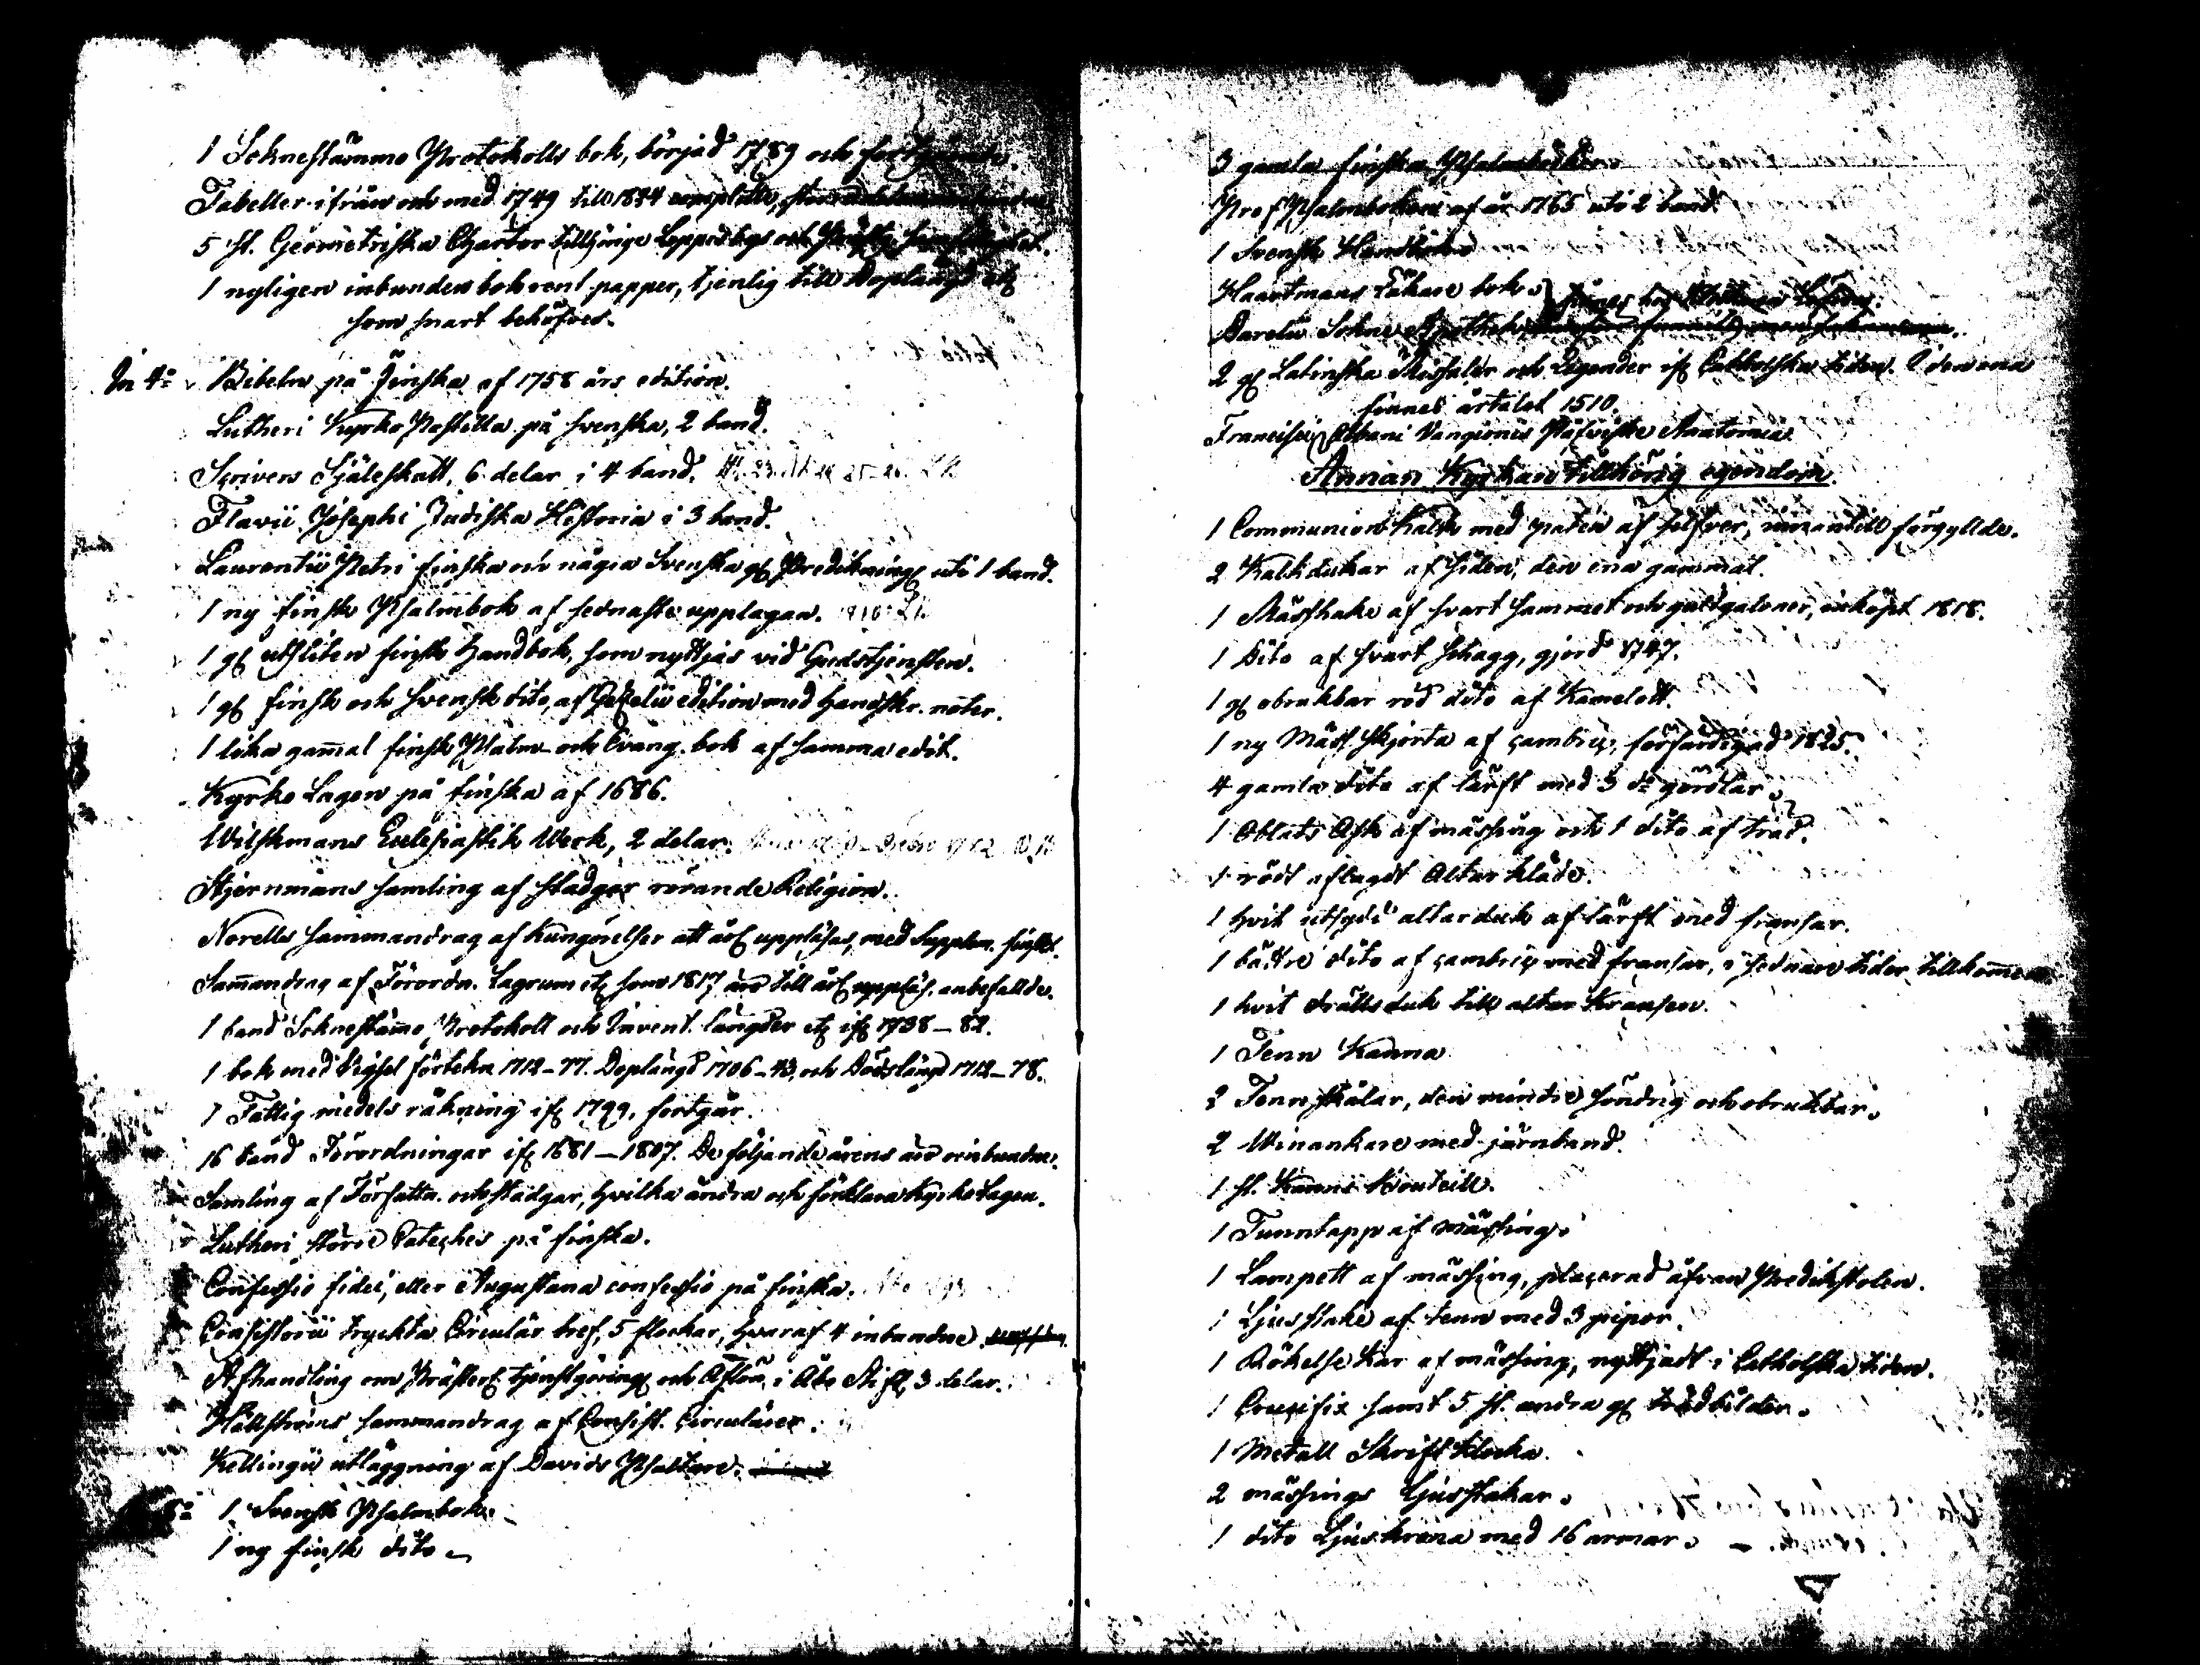 1 Sokneståmmo Protokolls bok, börjad 1789 och
Tabeller ifrån och med 1749 till 1824
5 st. Geometriska Chartor tillhörige
1 nyligen inbunden bok rent papper, tjenlig till Doplängd
som snart behöfves.
In 4:o Bibeln på Finska af 1758 års edition.
Lutheri Kyrko Postilla på svenska, 2 band.
Scrivers Själeskatt, 6 delar i 4 band.
Flavii Josephi Judiska Historia i 3 band.
Laurentii Petri finska och några Svenska gl Predikning uti 1 band.
1 ny finsk Psalmbok af sednaste upplagan.
1 gl utsliten finsk Handbok, som nyttjas vid Gudstjensten.
1 gl finsk och svensk dito, af Gezelii edition med Handskr. noter.
1 lika gamal finsk Psalm- och Evang. bok af samma edit.
Kyrko Lagen på finska af 1686.
Wilskmans Ecclesiastik Werk, 2 delar.
Stjernmans samling af stadgar rörande Religion.
Norells sammandrag af Kungörelser att årl uppläsas, med Supplem.
Samandrag af Förordn. Lagrum etc som 1817 äro till årl uppläs. anbefallde.
1 band Sokneståmo Protokoll och Invent. längder etc ifr 1738–82.
1 bok med Vigsel förtekn 1712–77. Doplängd 1706–43, och Dödslängd 1712–78.
1 Fattig medels räkning ifr 1799, fortgår.
16 band Förordningar ifr 1681–1807. De följande årens äro oinbundne.
Samling af Författn. och stadgar, hvilka ändra och förklara Kyrko Lagen.
Lutheri större Cateches på finska.
Confessio fidei, eller Augustana confessio på finska.
Consistorii tryckta Circulär bref, 5 flockar, hvaraf 4 inbundne
Afhandling om Prästerl tjenstgöring och Aflön. i Åbo Stift, 3 delar.
Hällströms sammandrag af Consist. Circulärer.
Kellingii utläggning af Davids Psaltare.
1 Svensk Psalmbok.
1 ny finsk dito
3 gamla finska Psalmböcker.
Prof Psalmboken af år 1765 uti 2 band.
1 Svensk Handbok
Haartmans Läkare bok
Darelii Sokne Apothek
2 gl Latinska Missaler och Legender ifr Catholska tiden. I den ena
finnes årtalet 1510.
Francisci Albani Vangionis Påfviske Anatomia
Annan Kyrkan tillhörig egendom.
1 Communion Kalk med paten af silfver, innantill förgyllde.
2 Kalkdukar af siden, den ena gammal.
1 Mässhake af svart sammet och guldgaloner, inköpt 1818.
1 Dito af svart schagg, gjord 1747.
1 gl obrukbar röd dito af Kamelott.
1 ny Mäss skjorta af cambric, förfärdigad 1825.
4 gamla dito af lärft med 3 d:o gördlar.
1 Oblats Ask af mässing och 1 dito af träd.
1 rödt aflagdt Altar kläde.
1 hvit utsydd altarduk af lärft med fransar.
1 bättre dito af cambric med fransar, i sednare tider tillkomen.
1 hvit drälls duk till altar Kransen.
1 Tenn Kanna
2 Tenn skålar, den mindre söndrig och obrukbar.
2 Winankare med järnband.
1 st. Kanns Bouteill.
1 Tunntapp af mässing.
1 Lampett af mässing, placerad åfvan Predikstolen.
1 Ljusstake af tenn med 3 pipor.
1 Rökelse Kar af mässing, nyttjadt i Catholska tiden.
1 Crucifix samt 5 st. andra gl trädbilder.
1 Metall Skrift Klocka.
2 mässings Ljusstakar.
1 dito Ljuskrona med 16 armar.